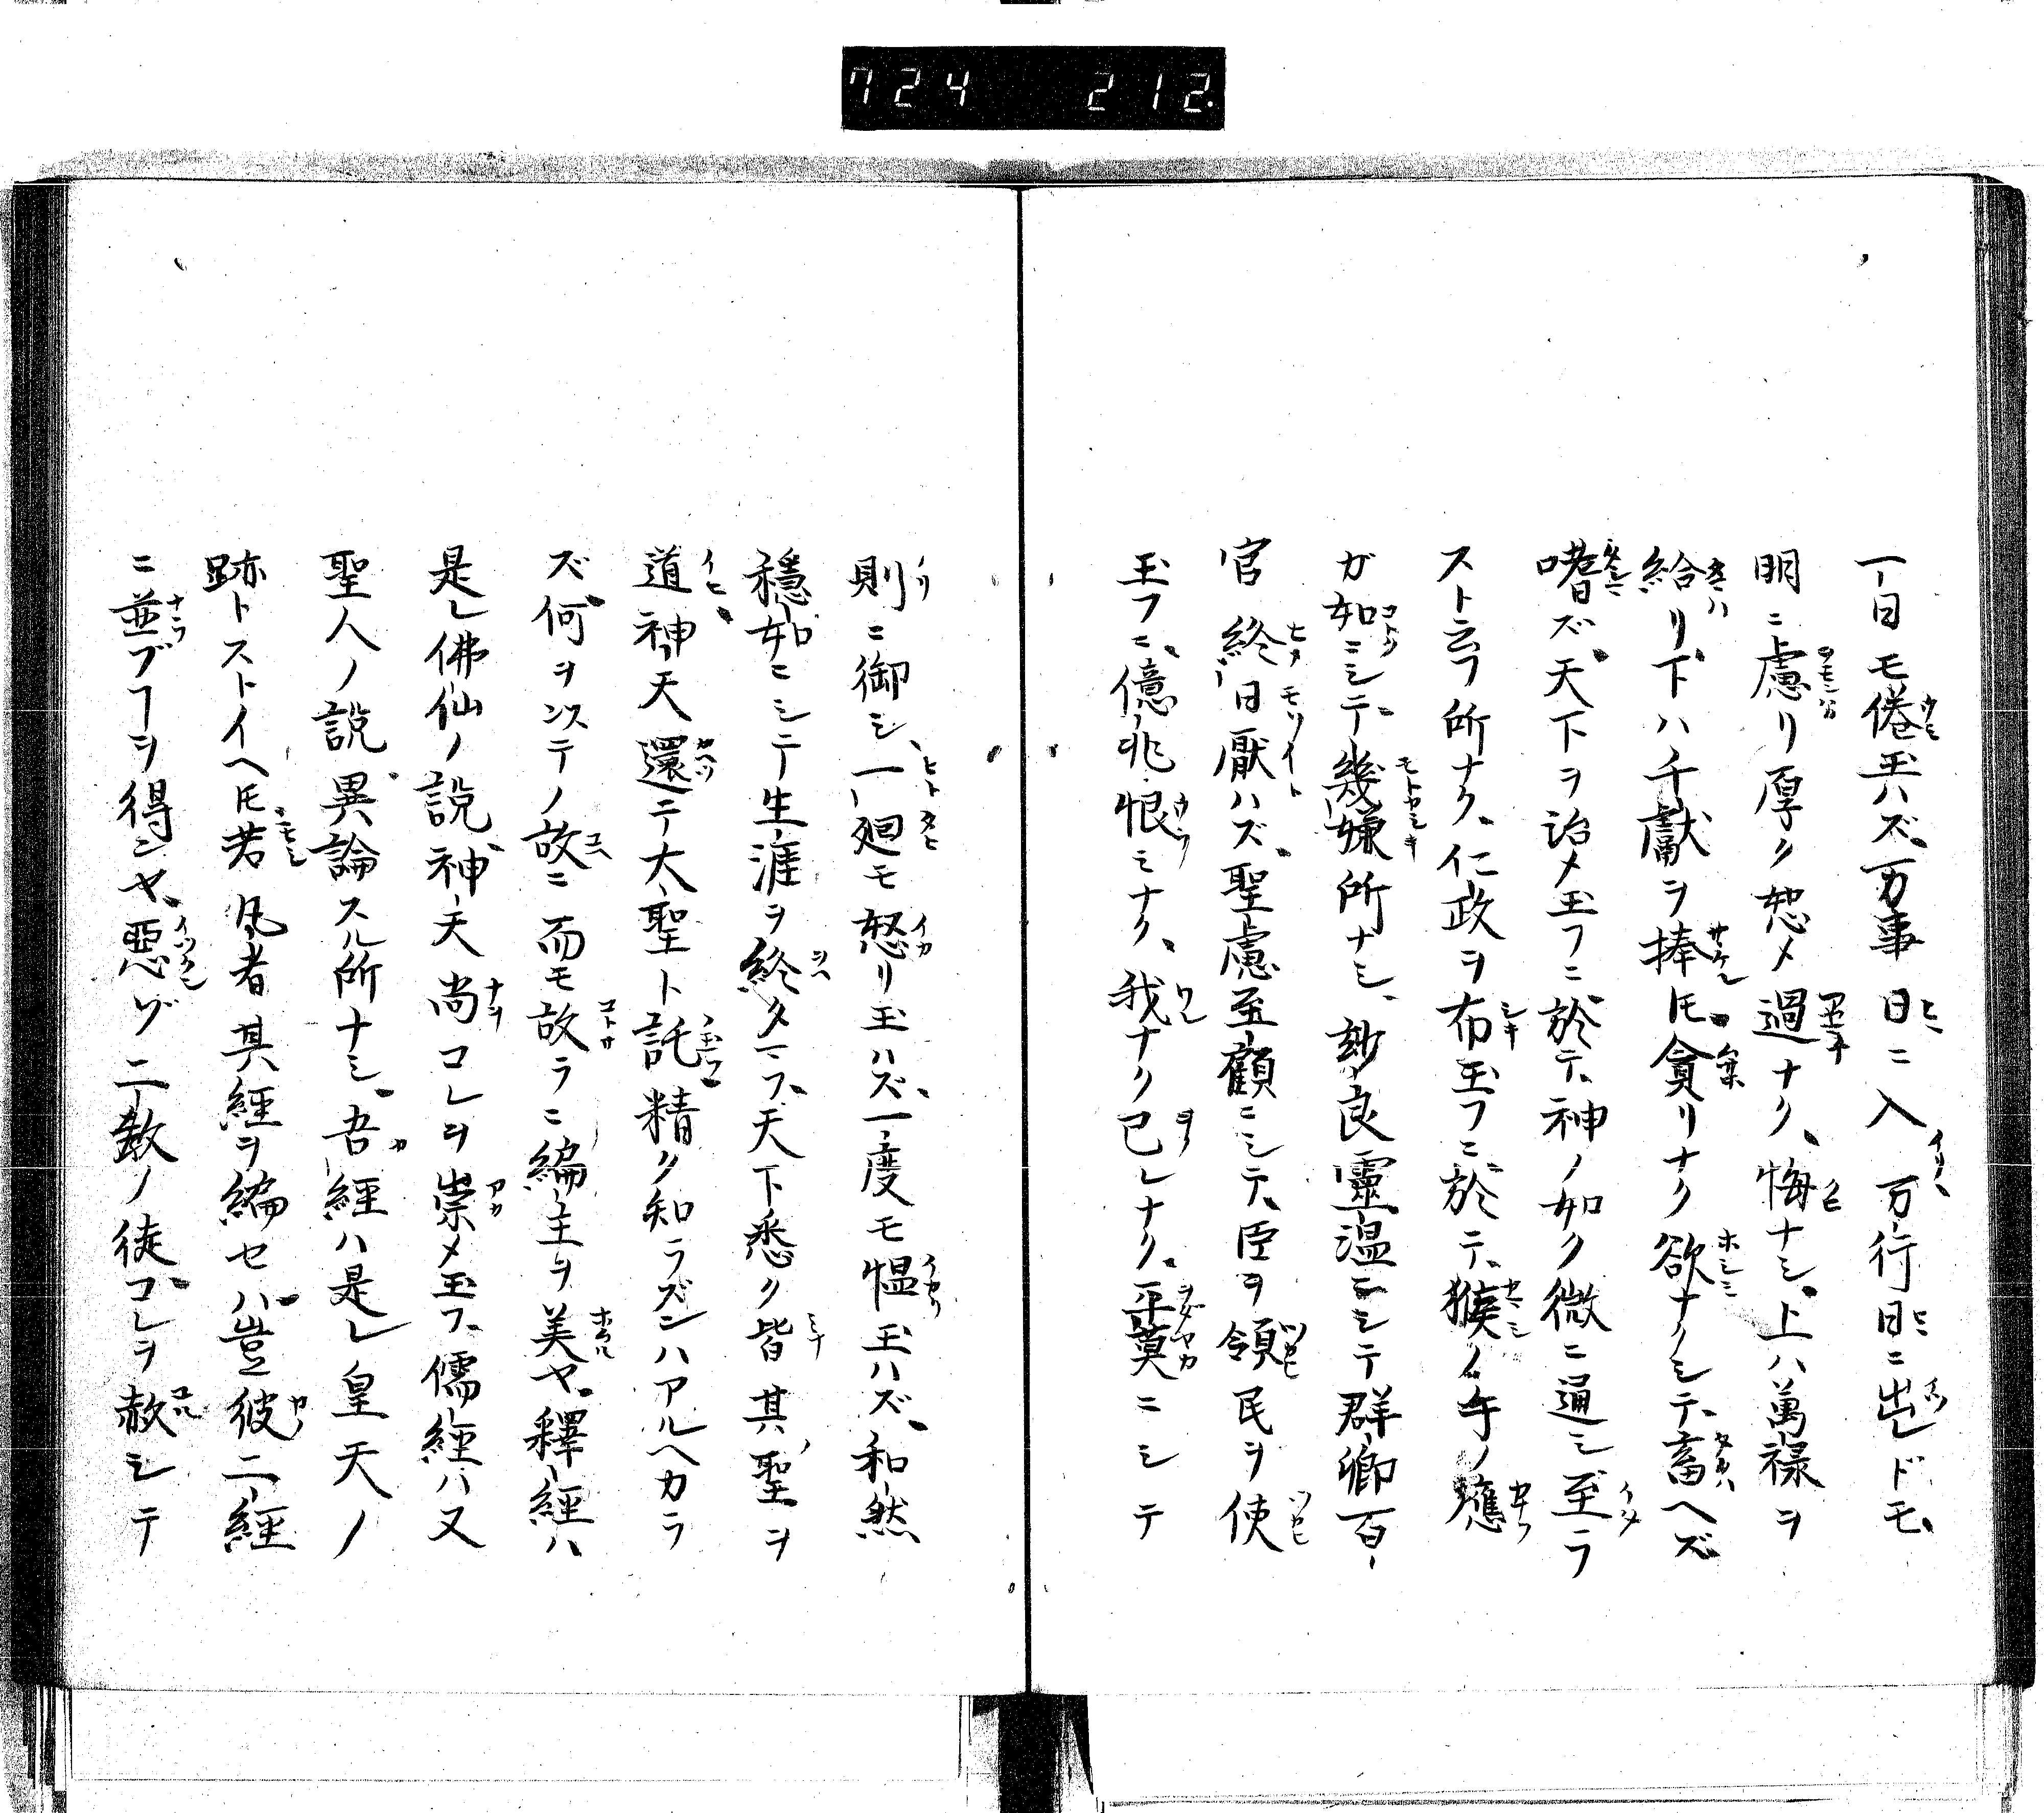 724 212.
一日モ倦玉ハズ、万事日ニ入万行日ニ出レドモ、
明ニ慮リ厚ク恕メ過ナク、悔ナシ、上ハ萬禄ヲ
給リ下ハ千獻ヲ捧レ𪜈貪リナク欲ナクシテ、畜ヘズ
嗜ズ、天下ヲ治メ玉フニ於テ、神ノ如ク微ニ通シ至ラ
スト云フ所ナク、仁政ヲ布玉フニ於テ、猴ノ手ノ應
ガ如ニシテ、幾嫌所ナシ、玅良靈温ニシテ群卿百
官終日厭ハズ、聖慮至顧ニシテ、臣ヲ領民ヲ使
玉フニ、億兆恨ミナク、我ナク已レナク、平莫ニシテ
則ニ御シ、一廻モ怒リ玉ハズ、一度モ愠玉ハズ、和然
穩如ニシテ生涯ヲ終タマフ、天下悉ク皆其聖ヲ
道、神天還テ大聖ト託精ク知ラズンハアルヘカラ
ズ、何ヲンステノ故ニ而モ故ラニ編主ヲ美ヤ、釋經ハ
是レ佛仙ノ説、神天尚コレヲ崇メ玉フ、儒經ハ又
聖人ノ説、異論スル所ナシ、吾經ハ是レ皇天ノ
跡トストイヘ𪜈若凡者其經ヲ編セハ、豈彼二經
ニ並ブヿヲ得ンヤ、惡ゾ二教ノ徒コレヲ赦シテ